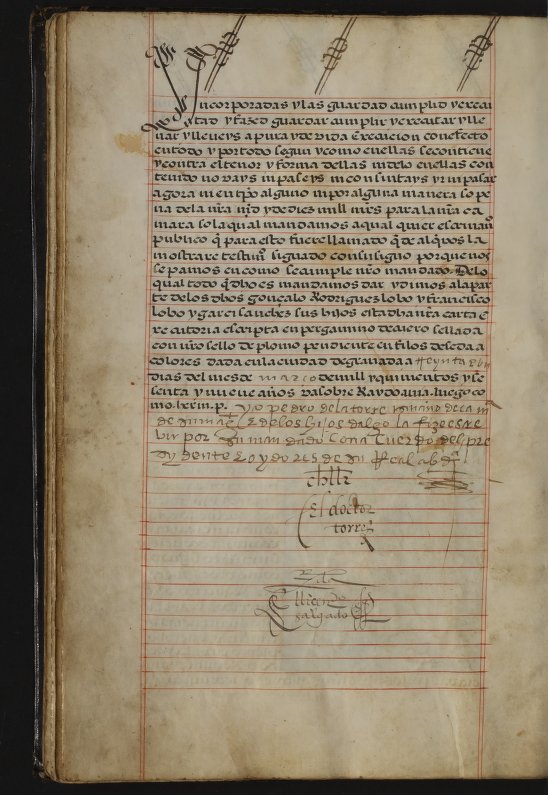 incorporadas y las guardad cunplid y execu
tad y fazed guardar cunplir y executar y lle
uar y lleueys a pura y deuida execucion con efecto
en todo y por todo segun y como en ellas se contiene
y contra el tenor y forma dellas ni delo en ellas con
tenido no vays ni paseys ni consintays yr ni pasar
agora ni en tpo alguno ni por alguna manera so pe
na dela nra md y de diez mill mrs para la nra ca
mara so la qual mandamos a qual quier escriuano
publico q para esto fuere llamado q de al q vos la
mostrare testimo signado con su signo porque nos
sepamos en como se cunple nro mandado. Delo
qual todo q dho es mandamos dar y dimos a la par
te delos dhos gonçalo Rodriguez lobo y françisco
lobo y garci sanchez sus hijos esta dha nra carta e
xecutoria escripta en pergamino de cuero sellada
con nro sello de plomo pendiente en filos de seda a
colores dada en la ciudad de granada a treynta e un
dias del mes de março de mill y quinientos y se
senta y nueue años va sobre Raydo
yo pedro dela torre escriuano de cama
de su mag e delos hijos dalgo la fize escre
bir por su mandado con acuerdo del pre
sydente e oydores de su Real abda
chllr
El doctor
torre
El licendo
salgado